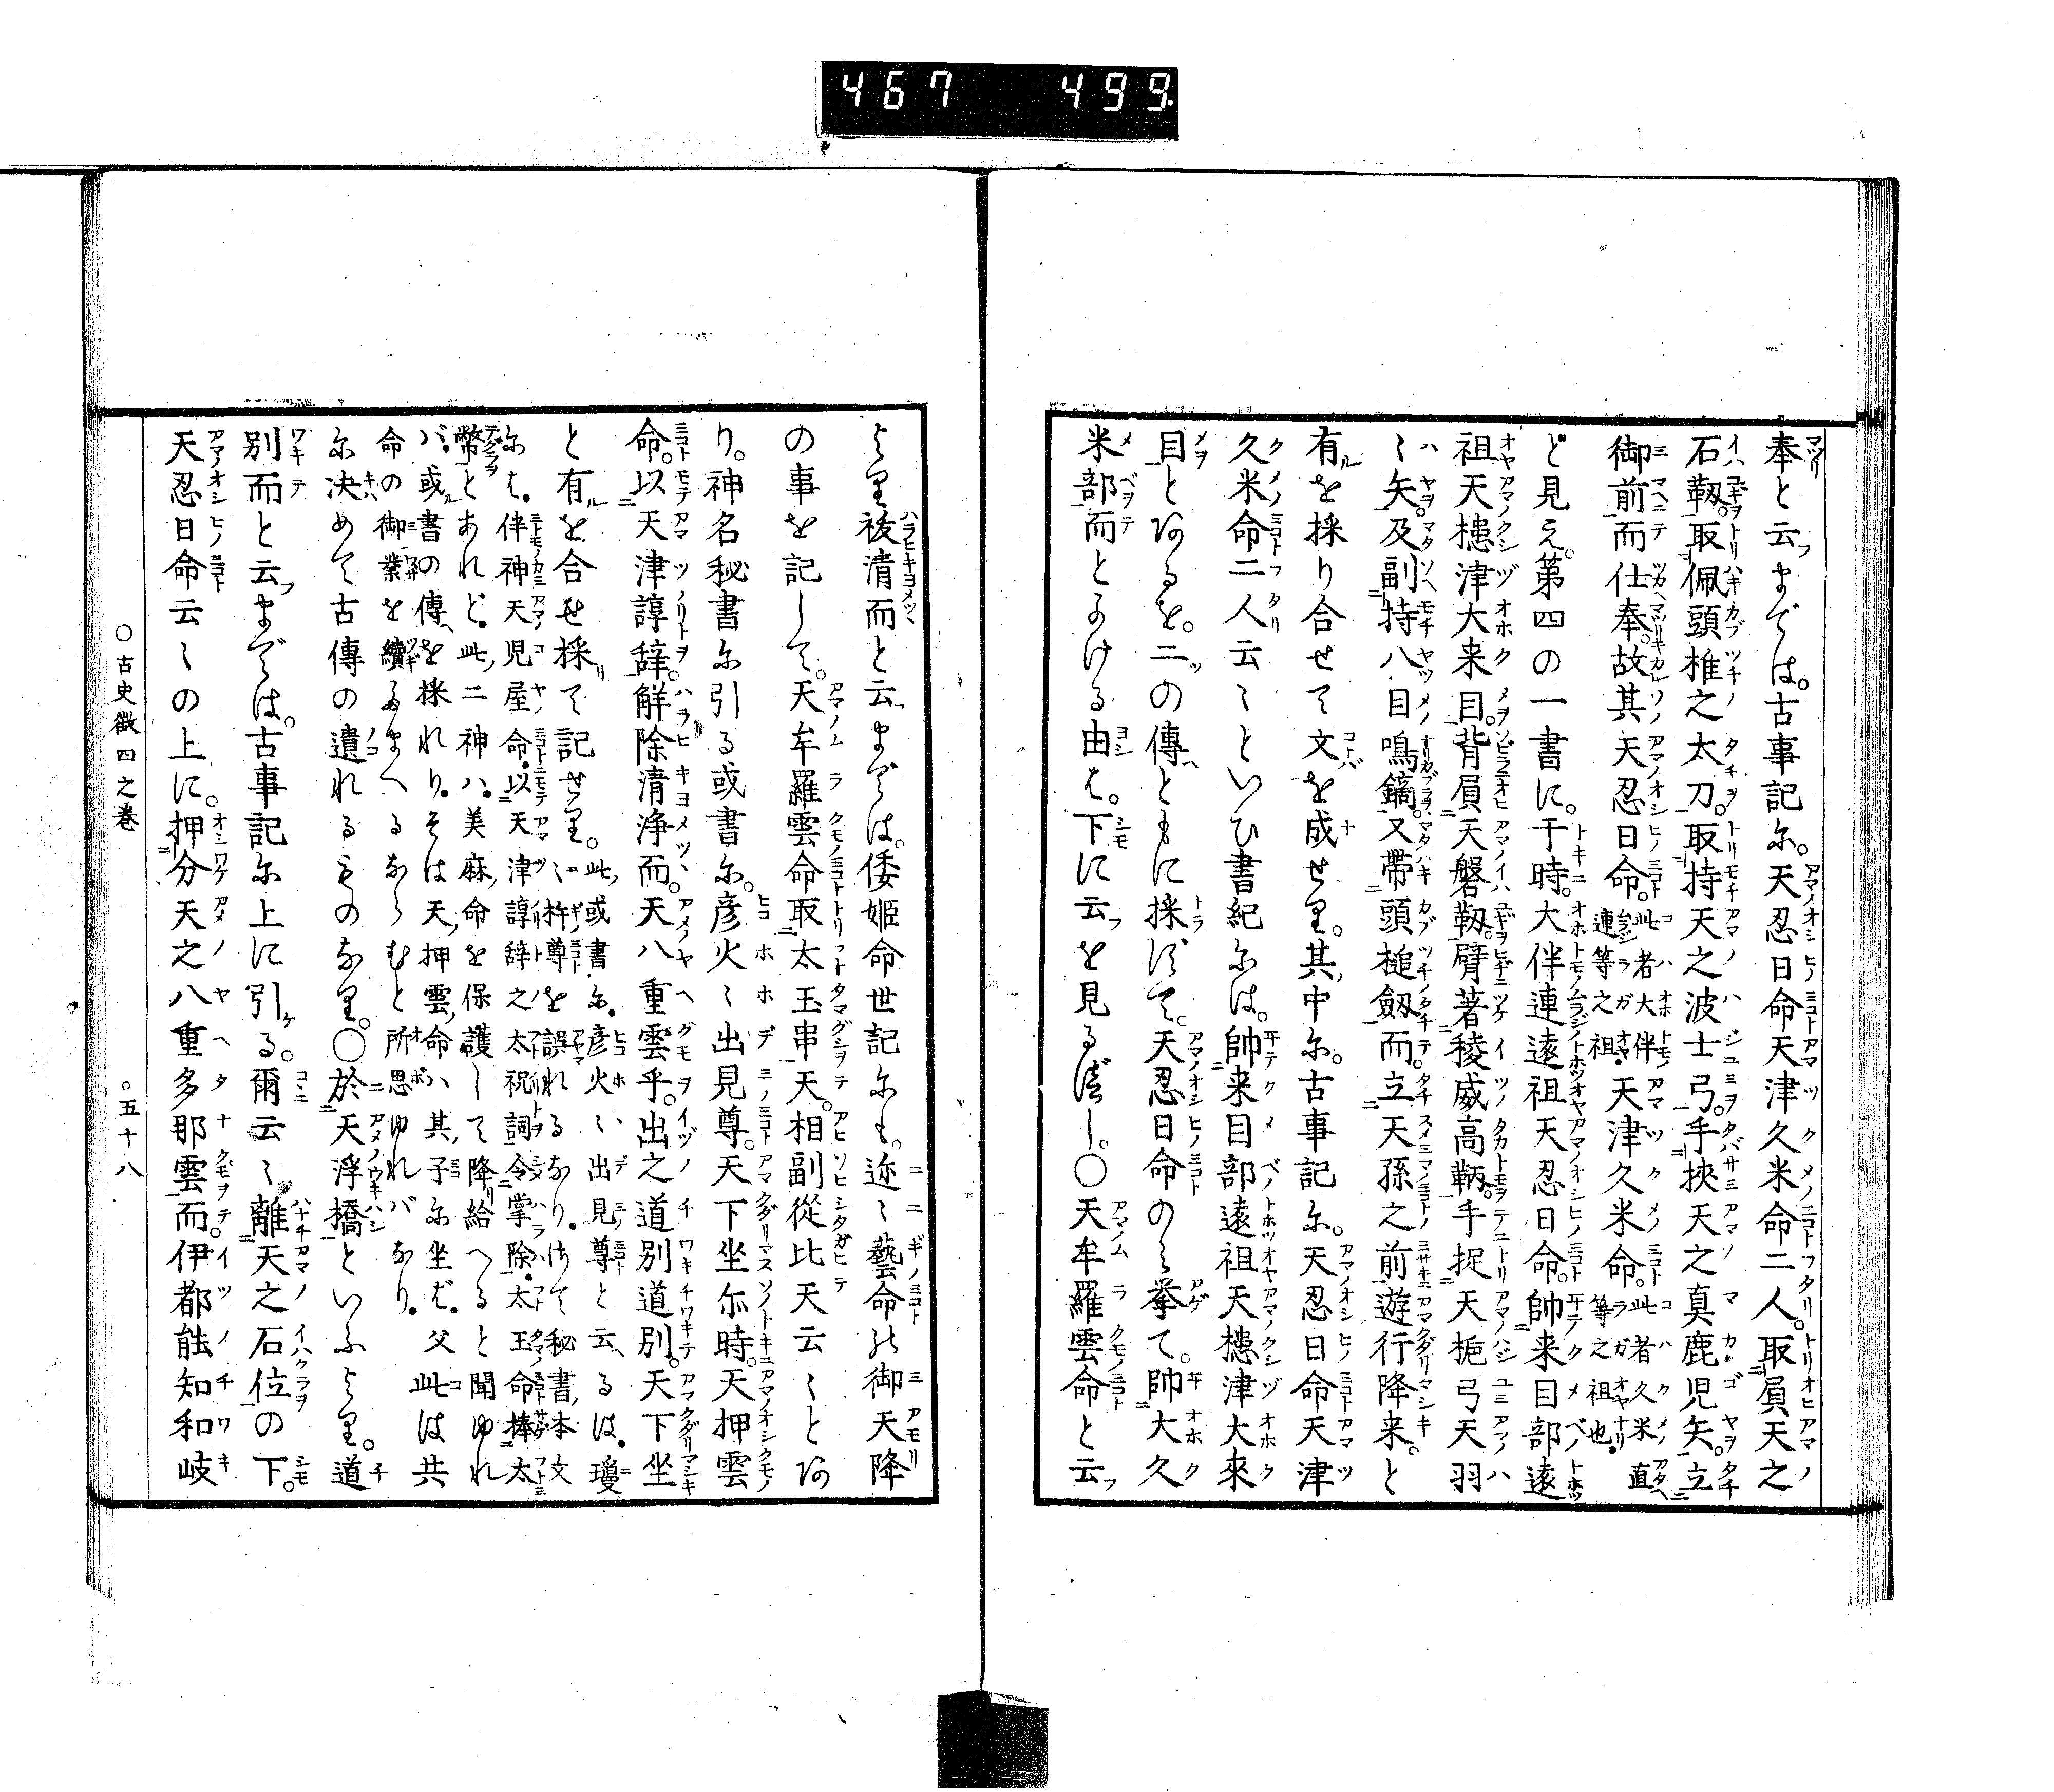 467 499
奉と云までは。古事記尓。天忍日命天津久米命二人。取負天之
石靫。取佩頭椎之太刀。取持天之波士弓。手挾天之真鹿児矢。立
御前而仕奉。故其天忍日命。此者大伴連等之祖。天津久米命。此者久米直等之祖也。
ど見え。第四の一書に。于時。大伴連遠祖天忍日命。帥来目部遠
祖天槵津大来目。背負天磐靫。臂著稜威高鞆。手捉天梔弓天羽
〻矢。及副持八目鳴鏑。又帶頭槌劔而。立天孫之前遊行降来。と
有を採り合せて文を成せり。其中尓。古事記尓。天忍日命天津
久米命二人云〻といひ書紀尓は。帥来目部遠祖天槵津大來
目とあるを。二の傳ともに採ずて。天忍日命のみ挙て。帥大久
米部而とかける由は。下に云を見るべし。○天牟羅雲命と云
より祓清而と云までは。倭姫命世記尓も。迩〻藝命の御天降
の事を記して。天牟羅雲命取太玉串天。相副從比天云〻とあ
り。神名秘書尓引る或書尓。彦火〻出見尊。天下坐尓時。天押雲
命。以天津諄辞。解除清浄而。天八重雲乎。出之道別道別。天下坐
と有を合せ採て記せり。此或書尓。彦火〻出見尊と云るは。瓊
〻杵尊を誤れるなり。さて秘書本文
尓は。伴神天児屋命。以天津諄辞之太祝詞。令掌除。太玉命捧太
幣とあれど。此二神ハ。美麻命を保護して降給へると聞ゆれ
バ。或書の傳を採れり。そは天押雲命ハ其子尓坐ば。父
命の御業を續たまへるならむと所思ゆれバなり。此は共
尓决めて古傳の遺れるものなり。○於天浮橋といふより。道
別而と云までは。古事記尓上に引る。爾云〻離天之石位の下。
天忍日命云〻の上に。押分天之八重多那雲而。伊都能知和岐
○古史徴四之巻 ○五十八